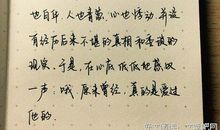 也自卑，人也青涩，心也悸动，并没
有经历后来不堪的真相和委诿的
现实，于是，在心底低低地发出
一声：哦，原来曾经，真的是爱过
他的。